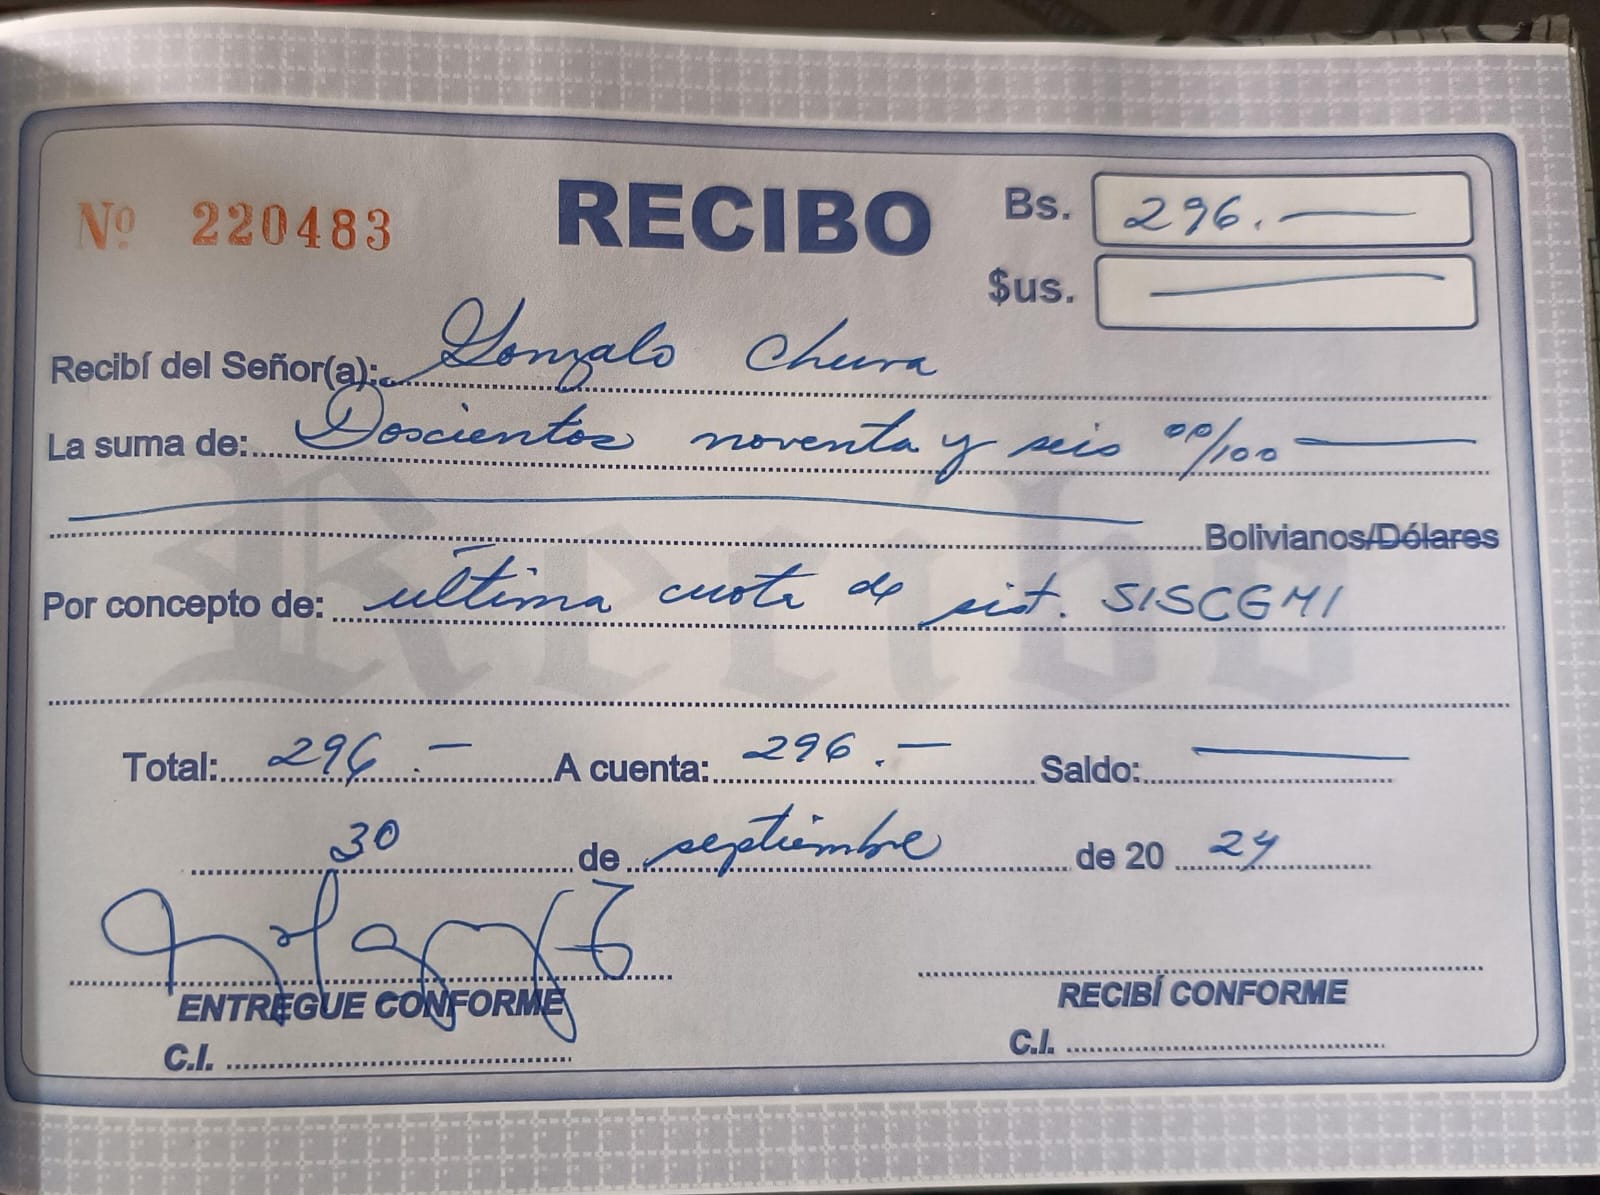 Nº 220483
RECIBO
Bs. 296.—
$us. —
Recibí del Señor(a): Gonzalo Chura
La suma de: Doscientos noventa y seis 00/100 —
Bolivianos/Dólares
Por concepto de: última cuota de sist. SISCGMI
Total: 296.— A cuenta: 296.— Saldo: —
30 de septiembre de 2024
ENTREGUE CONFORME
RECIBÍ CONFORME
C.I.
C.I.
Recibo